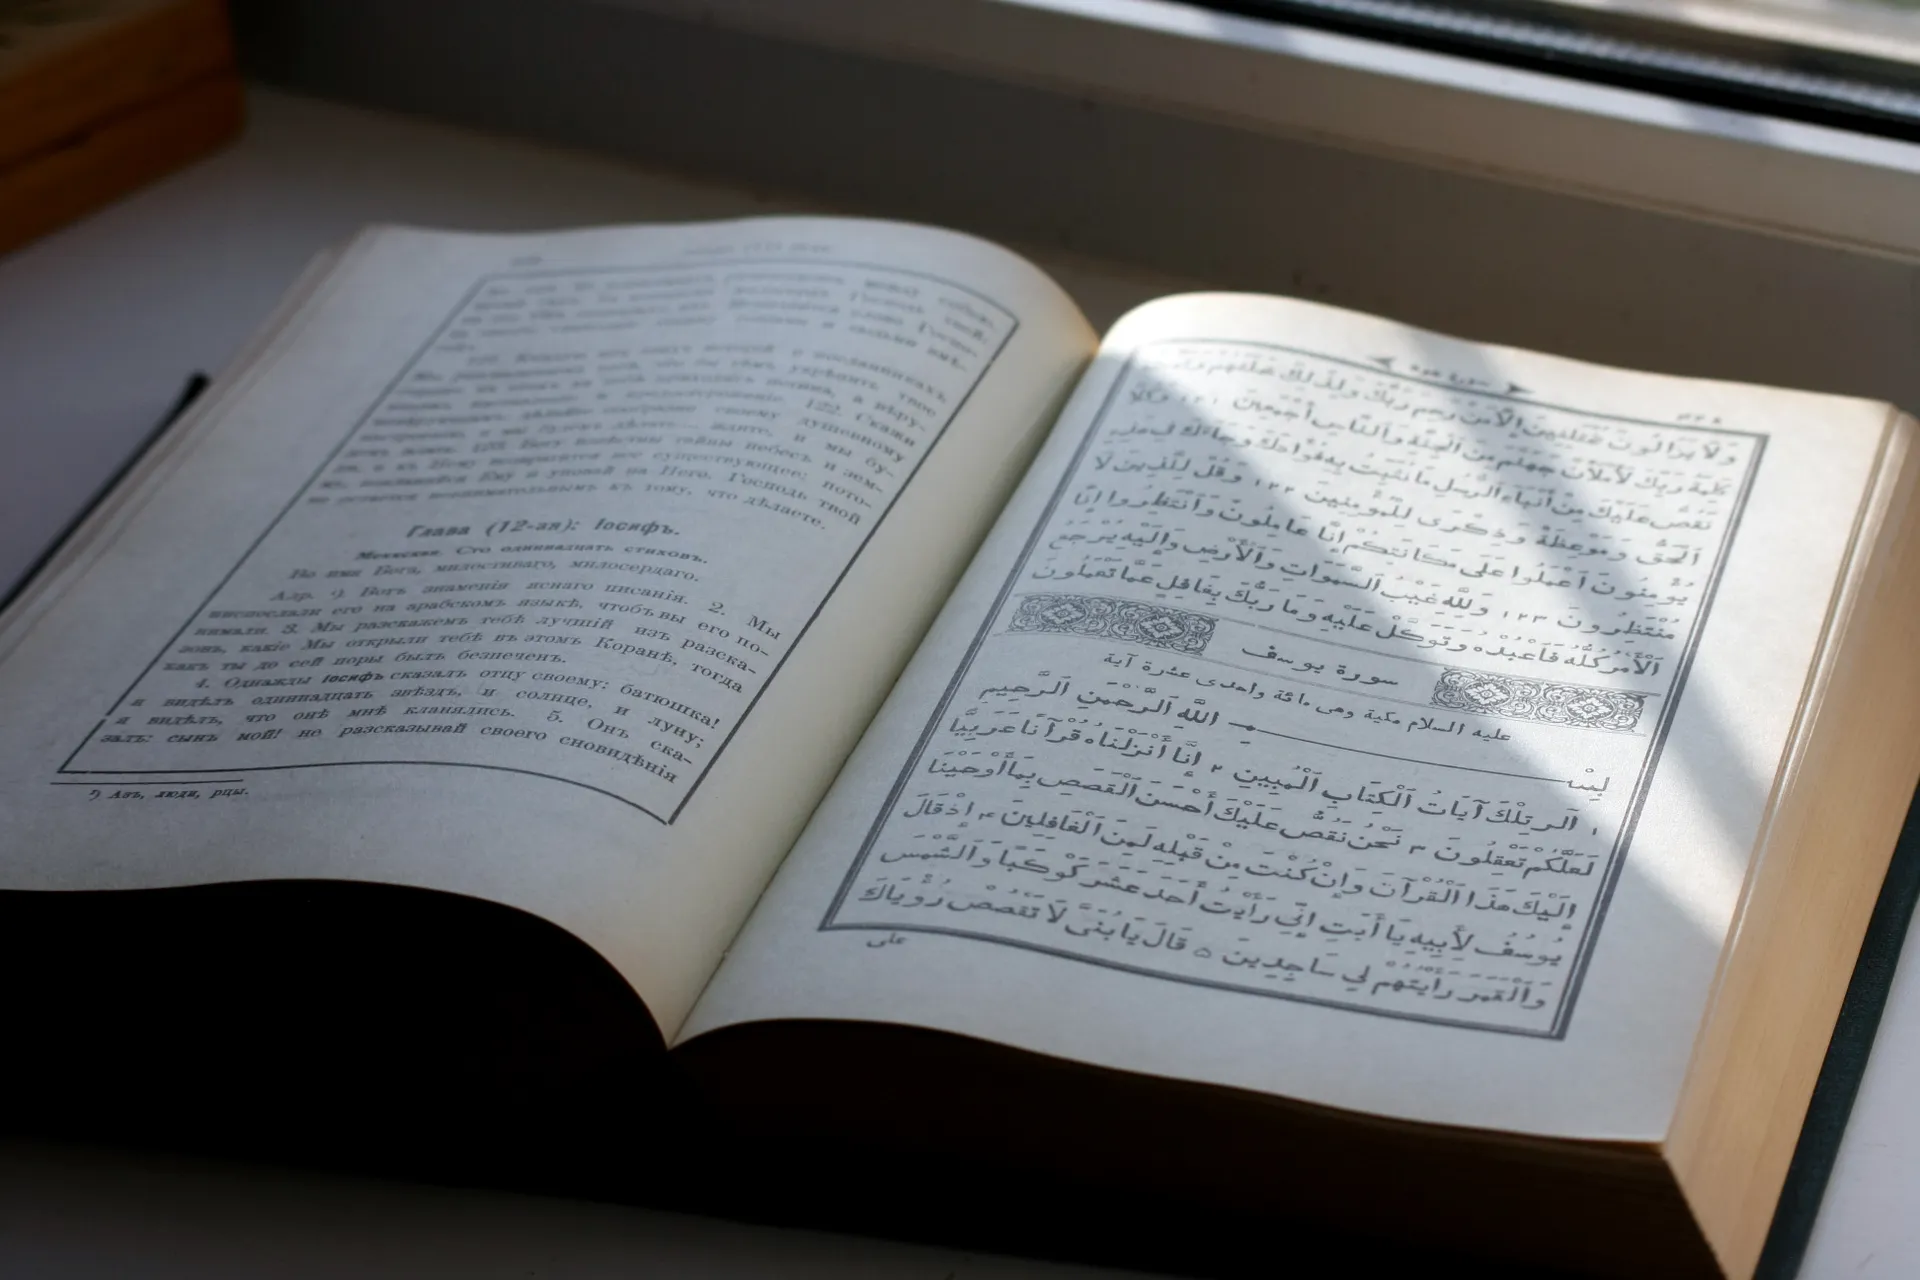 Мы разсказываемъ тебѣ, что бы тѣмъ укрѣпить твое
122. Скажи
дѣлайте душевному
ждите, и мы бу-
123. Богу извѣстны тайны небесъ и зем-
ли, и къ Нему возвратится все существующее: пото-
му, покланяйся Ему и уповай на Него. Господь твой
не остается невнимательнымъ къ тому, что дѣлаете.
Глава (12-ая): Іосифъ.
Меккская. Сто одиннадцать стиховъ.
Во имя Бога, милостиваго, милосердаго.
Алр. ¹) Вотъ знаменія яснаго писанія. 2. Мы
ниспослали его на арабскомъ языкѣ, чтобъ вы его по-
нимали. 3. Мы разскажемъ тебѣ лучшій изъ разска-
зовъ, какіе Мы открыли тебѣ въ этомъ Коранѣ, тогда
какъ ты до сей поры былъ безпеченъ.
4. Однажды Іосифъ сказалъ отцу своему: батюшка!
я видѣлъ одиннадцать звѣздъ, и солнце, и луну;
я видѣлъ, что онѣ мнѣ кланялись. 5. Онъ ска-
залъ: сынъ мой! не разсказывай своего сновидѣнія
¹) Азъ, люди, рцы.
سورة هود
وَلَا يَزَالُونَ مُخْتَلِفِينَ إِلَّا مَنْ رَحِمَ رَبُّكَ وَلِذَلِكَ خَلَقَهُمْ وَتَمَّتْ
كَلِمَةُ رَبِّكَ لَأَمْلَأَنَّ جَهَنَّمَ مِنَ ٱلْجِنَّةِ وَٱلنَّاسِ أَجْمَعِينَ ١٢١ وَكُلًّا
نَقُصُّ عَلَيْكَ مِنْ أَنْبَاءِ ٱلرُّسُلِ مَا نُثَبِّتُ بِهِ فُؤَادَكَ وَجَاءَكَ فِي هَذِهِ
ٱلْحَقُّ وَمَوْعِظَةٌ وَذِكْرَى لِلْمُؤْمِنِينَ ١٢٢ وَقُلْ لِلَّذِينَ لَا
يُؤْمِنُونَ ٱعْمَلُوا عَلَى مَكَانَتِكُمْ إِنَّا عَامِلُونَ وَٱنْتَظِرُوا إِنَّا
مُنْتَظِرُونَ ١٢٣ وَلِلَّهِ غَيْبُ ٱلسَّمَوَاتِ وَٱلْأَرْضِ وَإِلَيْهِ يُرْجَعُ
ٱلْأَمْرُ كُلُّهُ فَٱعْبُدْهُ وَتَوَكَّلْ عَلَيْهِ وَمَا رَبُّكَ بِغَافِلٍ عَمَّا تَعْمَلُونَ
سورة يوسف
عليه السلام مكية وهى مائة واحدى عشرة آية
بِسْمِ ٱللَّهِ ٱلرَّحْمَنِ ٱلرَّحِيمِ
١ الر تِلْكَ آيَاتُ ٱلْكِتَابِ ٱلْمُبِينِ ٢ إِنَّا أَنْزَلْنَاهُ قُرْآنًا عَرَبِيًّا
لَعَلَّكُمْ تَعْقِلُونَ ٣ نَحْنُ نَقُصُّ عَلَيْكَ أَحْسَنَ ٱلْقَصَصِ بِمَا أَوْحَيْنَا
إِلَيْكَ هَذَا ٱلْقُرْآنَ وَإِنْ كُنْتَ مِنْ قَبْلِهِ لَمِنَ ٱلْغَافِلِينَ ٤ إِذْ قَالَ
يُوسُفُ لِأَبِيهِ يَا أَبَتِ إِنِّي رَأَيْتُ أَحَدَ عَشَرَ كَوْكَبًا وَٱلشَّمْسَ
وَٱلْقَمَرَ رَأَيْتُهُمْ لِي سَاجِدِينَ ٥ قَالَ يَا بُنَيَّ لَا تَقْصُصْ رُؤْيَاكَ
على